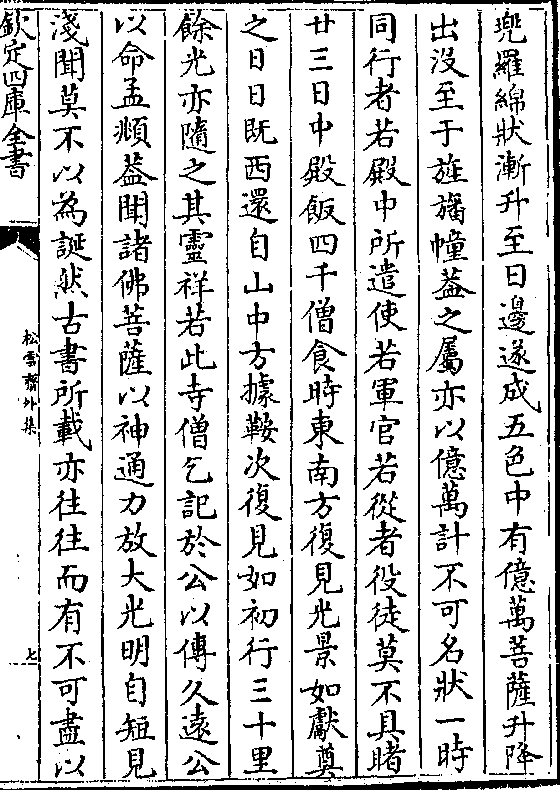 兜羅綿狀漸升至日邊遂成五色中有億萬菩薩升降
出没至于旌旛幢葢之屬亦以億萬計不可名狀一時
同行者若殿中所遣使若軍官若從者役徒莫不具睹
廿三日中殿飯四千僧食時東南方復見光景如獻奠
之日日既西還自山中方據鞍次復見如初行三十里
餘光亦隨之其靈祥若此寺僧乞記於公以傳久遠公
以命孟頫葢聞諸佛菩薩以神通力放大光明自短見
淺聞莫不以為誕然古書所載亦往往而有不可盡以
欽定四庫全書
松雪齋外集
七